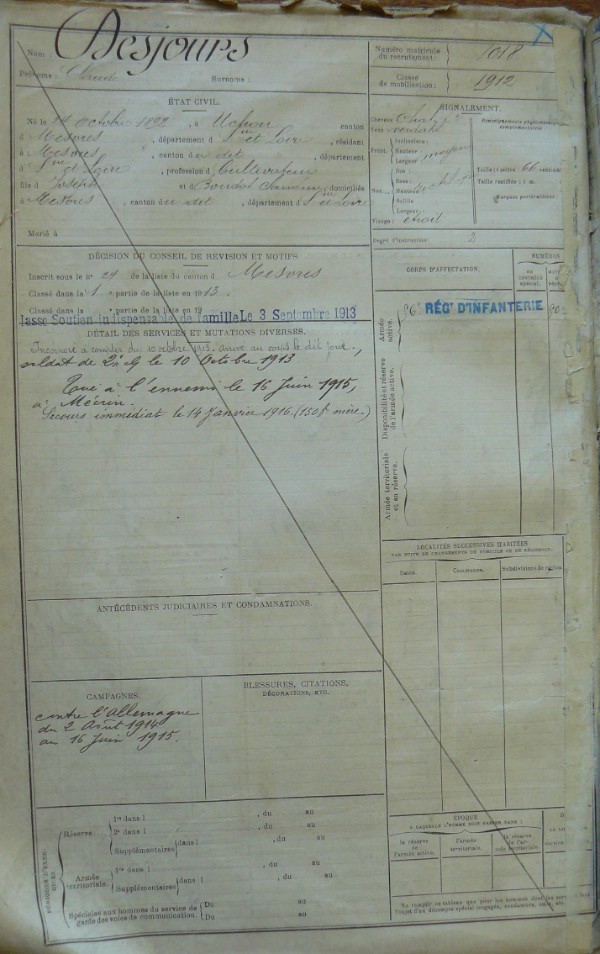 Nom: Desjours
Prénoms: Claude Surnoms:
Numéro matricule du recrutement: 1018
Classe de mobilisation: 1912
ÉTAT CIVIL.
Né le 14 octobre 1892, à Uchon canton
d Mesvres, département d S.ne et Loire, résidant
à Mesvres, canton d u dit, département
d S.ne et Loire, profession d cultivateur
fils d Joseph et d domicilié
à Mesvres, canton d u dit, département d S.ne et Loire
Marié à
SIGNALEMENT.
Cheveux
Yeux verdâtre
Front. Inclinaison:
Hauteur: moyen
Largeur:
Nez. Dos:
Base:
Hauteur:
Saillie
Largeur:
Visage: étroit
Renseignements physionomiques complémentaires:
Taille: 1 mètre 66 centim.
Taille rectifiée: 1 m.
Marques particulières:
Degré d'instruction: 2
DÉCISION DU CONSEIL DE REVISION ET MOTIFS.
Inscrit sous le n° 29 de la liste du canton d Mesvres
Classé dans la 1 e partie de la liste en 1913.
Classé dans la e partie de la liste en 19
lassé Soutien indispensable de famille Le 3 Septembre 1913
DÉTAIL DES SERVICES ET MUTATIONS DIVERSES.
Incorporé à compter du 10 octobre 1913. Arrivé au corps le dit jour.,
soldat de 2e cl le 10 Octobre 1913
Tué à l'ennemi le 16 Juin 1915,
à Mécrin.
Secours immédiat le 14 Janvier 1916. (150f mère.)
CORPS D'AFFECTATION.
NUMÉROS
Armée active.
RÉGt D'INFANTERIE
Disponibilité et réserve de l'armée active.
Armée territoriale et sa réserve.
LOCALITÉS SUCCESSIVES HABITÉES
PAR SUITE DE CHANGEMENTS DE DOMICILE OU DE RÉSIDENCE.
Dates.
Communes.
Subdivisions de région
ANTÉCÉDENTS JUDICIAIRES ET CONDAMNATIONS.
CAMPAGNES.
contre l'Allemagne
du 2 Août 1914
au 16 Juin 1915.
BLESSURES, CITATIONS,
DÉCORATIONS, ETC.
PÉRIODES D'EXERCICES.
Réserve.
1re dans l , du au
2e dans l , du au
Supplémentaires dans l , du au
Armée territoriale.
1re dans l , du au
Supplémentaires dans l , du au
Spéciales aux hommes du service de garde des voies de communication.
Du au
Du au
ÉPOQUE
À LAQUELLE L'HOMME DOIT PASSER DANS:
la réserve de l'armée active.
l'armée territoriale.
la réserve de l'armée territoriale.